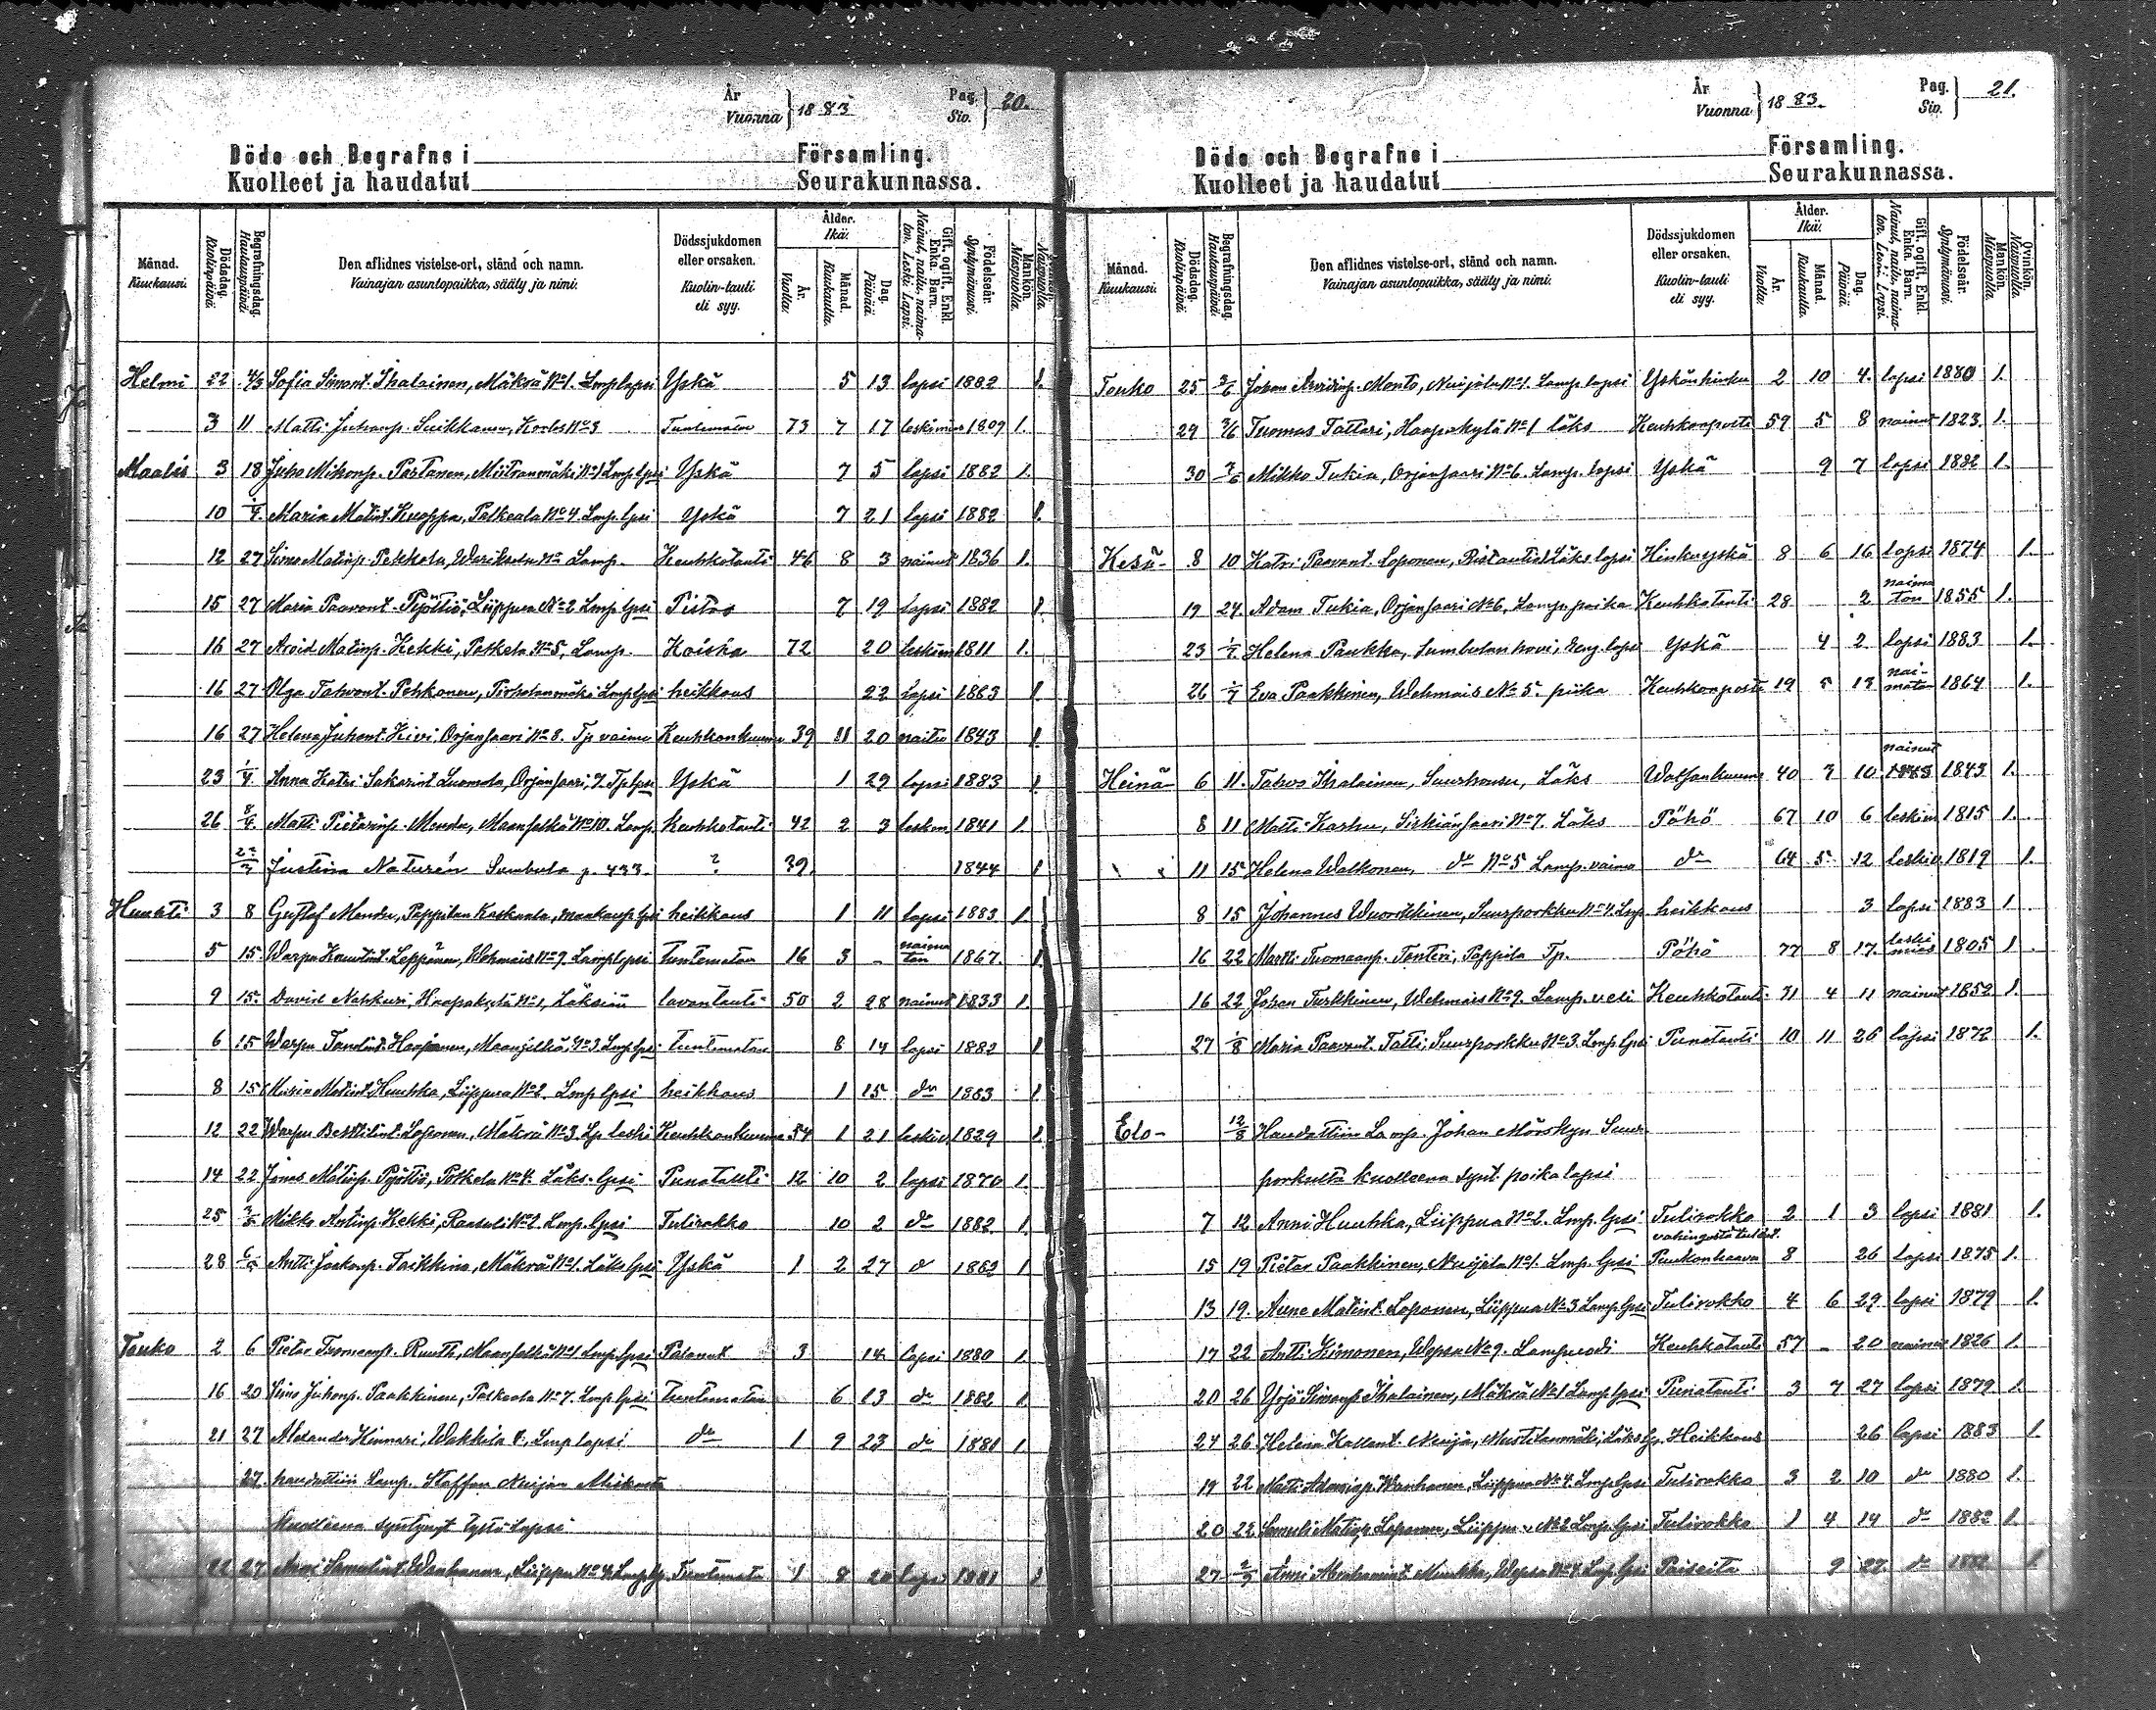 År
Vuonna } 1883
Pag.
Sio. } 20.
Döde och Begrafne i Församling.
Kuolleet ja haudatut Seurakunnassa.
Månad. Kuukausi. Dödsdag. Kuolinpäivä. Begrafningsdag. Hautauspäivä. Den aflidnes vistelse-ort, stånd och namn. Vainajan asuntopaikka, sääty ja nimi. Dödssjukdomen eller orsaken. Kuolin-tauti eli syy. Ålder. Ikä. År. Vuotta. Månad. Kuukautta. Dag. Päivää. Gift, ogift, Enkl. Enka. Barn. Nainut, naitu, naimaton. Leski. Lapsi. Födelseår. Syntymävuosi. Mankön. Miespuolta. Naispuolta.
Helmi 22 4/3 Sofia Simont. Ihalainen, Mäkrä No 1. Lmp lapsi Yskä 5 13 lapsi 1882 1.
3 11 Matti Juhanp. Suikkanen, No 3 Tuntematon 73 7 17 leskimies 1809 1.
Maalis 3 18 Juho Mikonp. Partanen, No 1 Lmp lpsi Yskä 7 5 lapsi 1882 1.
10 1/4 Maria Matint. Kuoppa, Patkeala No 4. Lmp. lpsi Yskä 7 21 lapsi 1882 1.
12 27 Simo Matinp. Pekkola, No Lamp. Keuhkotauti 46 8 3 nainut 1836 1.
15 27 Maria Paavont. Pyöttiö, Liippua No 2 Lmp lpsi Pistos 7 19 lapsi 1882 1.
16 27 Arvid Matinp. Kekki, Potkela No 5, Lamp. 72 20 leskim 1811 1.
16 27 Olga Tahvont. Pehkonen, Lmp lpsi heikkous 22 lapsi 1883 1.
16 27 Helena Juhont. Kivi, Orjansaari No 8. Tp vaimo Keuhkonkuume 39 11 20 naitu 1843 1.
23 1/4 Anna Katri Sakarint Luomola, Orjansaari, Tp lpsi Yskä 1 29 lapsi 1883 1
26 8/4 Matti Pietarinp. Mendu, Maanselkä No 10. Lamp. Keuhkotauti 42 2 3 leskm 1841 1
22/3 Justina Naturén Sumbula p. 433. ? 39 1844 1
Huuhti 3 8 Gustaf Mendu, Pappilan lpsi heikkous 1 11 lapsi 1883 1.
5 15. Warpu Leppänen, Wehmais No 9. Lamp lpsi tuntematon 16 3 - naimaton 1867. 1.
9 15. David Nahkuri, Haapakylä No 1, Läksiäi lavantauti 50 2 28 nainut 1833 1.
6 15 Warpu Maanselkä, No 3 Lmp lpsi tuntematon 8 14 lapsi 1882 1
8 15 Maria Matint. Huuhka, Liippua No 2 Lmp lpsi heikkous 1 15 do 1883 1
12 22 Warpu Loponen, Mäkrä No 3. Lp leski Keuhkonkuume 54 1 21 leski 1829 1
14 22 Jonas Matinp. Pyöttiö, Potkela No 4. Läks. lpsi Punatauti 12 10 2 lapsi 1870 1.
25 3/5 Mikko Antinp. Kekki, Raasuli No 2 Lmp. lpsi Tulirokko 10 2 do 1882. 1.
28 6/5 Antti Taikkina, Mäkrä No 1. Läks lpsi Yskä 1 2 27 d 1882 1
Touko 2 6 Pietar Tuomaanp. Ruuth, Maanselkä No 1 Lmp lpsi Palanut 3 14 lapsi 1880 1.
16 20 Simo Juhonp. Paakkinen, Potkeala No 7. Lmp. lpsi Tuntematon 6 13 do 1882 1.
21 27 Alexander Hinnari, Wakkila Lmp lapsi do 1 9 23 do 1881 1.
27 haudattiin Lamp. Staffan Nuijan
Kuolleena syntynyt tyttö lapsi
22 27 Anni Samulint. Wanhanen, Liippua No 4. Lmp lp. Tuntematon 1 8 20 lapsi 1881 1
År
Vuonna } 1883.
Pag.
Sio. } 21.
Döde och Begrafne i Församling.
Kuolleet ja haudatut Seurakunnassa.
Månad. Kuukausi. Dödsdag. Kuolinpäivä. Begrafningsdag. Hautauspäivä. Den aflidnes vistelse-ort, stånd och namn. Vainajan asuntopaikka, sääty ja nimi. Dödssjukdomen eller orsaken. Kuolin-tauti eli syy. Ålder. Ikä. År. Vuotta. Månad. Kuukautta. Dag. Päivää. Gift, ogift, Enkl. Enka. Barn. Nainut, naitu, naimaton. Leski. Lapsi. Födelseår. Syntymävuosi. Mankön. Miespuolta. Qvinkön. Naispuolta.
Touko 25 3/6 Johan Monto, Nuijala No 1. Lamp. lapsi 2 10 4. lapsi 1880 1.
29 3/6 Tuomas Tattari, Haapakylä No 1 läks Keuhkonpolte 59 5 8 nainut 1823. 1.
30 7/6 Mikko Tukia, Orjansaari No 6. Lamp. lapsi Yskä 9 7 lapsi 1882 1.
Kesä- 8 10 Katri Paavont. Loponen, Läks lapsi Hinkuyskä 8 6 16 lapsi 1874 1.
19 24. Adam Tukia, Orjansaari No 6, Lamp. poika Keuhkotauti 28 2 naimaton 1855 1.
23 1/7 Helena Paukku, Sumbulan hovi, lapsi Yskä 4 2 lapsi 1883 1.
26 1/7 Eva Paakkinen, Wehmais No 5. piika Keuhkonposte 19 5 13 naimaton 1864 1.
Heinä- 6 11. Tahvo Ihalainen, Läks Watsankuume 40 3 10 nainut 1843 1.
8 11 Matti Karhu, Sirkiänsaari No 7. Läks Pöhö 67 10 6 leskim 1815 1.
11 15 Helena Walkonen, do No 5 Lamp. vaimo do 64 5 12 leski 1819 1.
8 15 Johannes Wuorikkinen, Suurporkku No 4. Lmp heikkous 3 lapsi 1883 1
16 22 Martti Tuomaanp. Tonteri, Pappila Tp. Pöhö 77 8 17. leskimies 1805 1.
16 22 Johan Turkkinen, Wehmais No 9. Lamp. veli Keuhkotauti 31 4 11 nainut 1852 1.
27 1/8 Maria Paavont. Tatti, Suurporkku No 3. Lmp lpsi Punatauti 10 11 26 lapsi 1872 1.
Elo- 12/8 Haudattiin Lamp. Johan Mörskyn Suur-
porkulta kuolleena synt. poikalapsi
7 12 Anni Huuhka, Liippua No 2. Lmp. lpsi Tulirokko 2 1 3 lapsi 1881 1.
15 19 Pietar Paakkinen, Nuijala No 1. Lmp. lpsi Puukonhaava 8 26 lapsi 1875 1.
13 19. Anne Matint. Loponen, Liippua No 3 Lamp lpsi Tulirokko 4 6 29 lapsi 1879 1.
17 22 Antti Kimonen, Wepsa No 9. Lampuodi Keuhkotauti 57 - 20 nainut 1826 1.
20 26 Yrjö Simonp. Ihalainen, Mäkrä No 1 Lamp lpsi Punatauti 3 7 27 lapsi 1879 1.
24 26. Helena Nuija, Mustilanmäki, Läks lp. Heikkous 26 lapsi 1883 1.
19 22 Matti Adaminp. Wanhanen, Liippua No 4. Lmp lpsi Tulirokko 3 2 10 do 1880 1.
20 22 Samuli Matinp. Loponen, Liippua No 2 Lmp. lpsi Tulirokko 1 4 14 do 1882 1.
27 2/9 Anni Abrahamint. Wepsa No 4. Lmp. lpsi Paiseita 9 27. do 1882 1